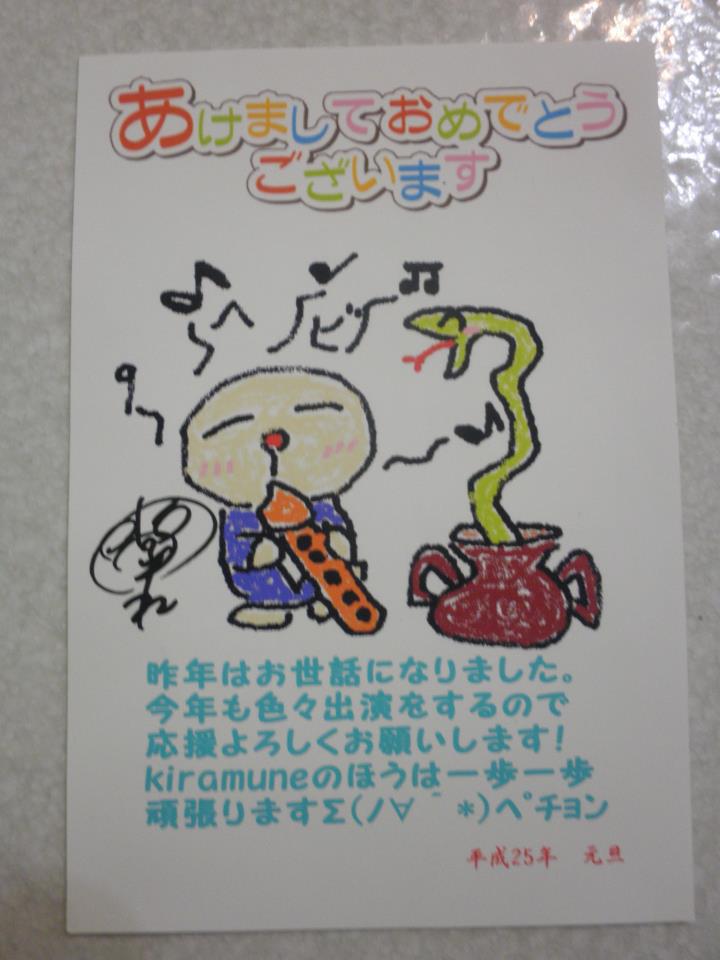 あけましておめでとう
ございます
昨年はお世話になりました。
今年も色々出演をするので
応援よろしくお願いします！
kiramuneのほうは一歩一歩
頑張りますΣ(ノ∀｀*)ペチョン
平成25年　元旦